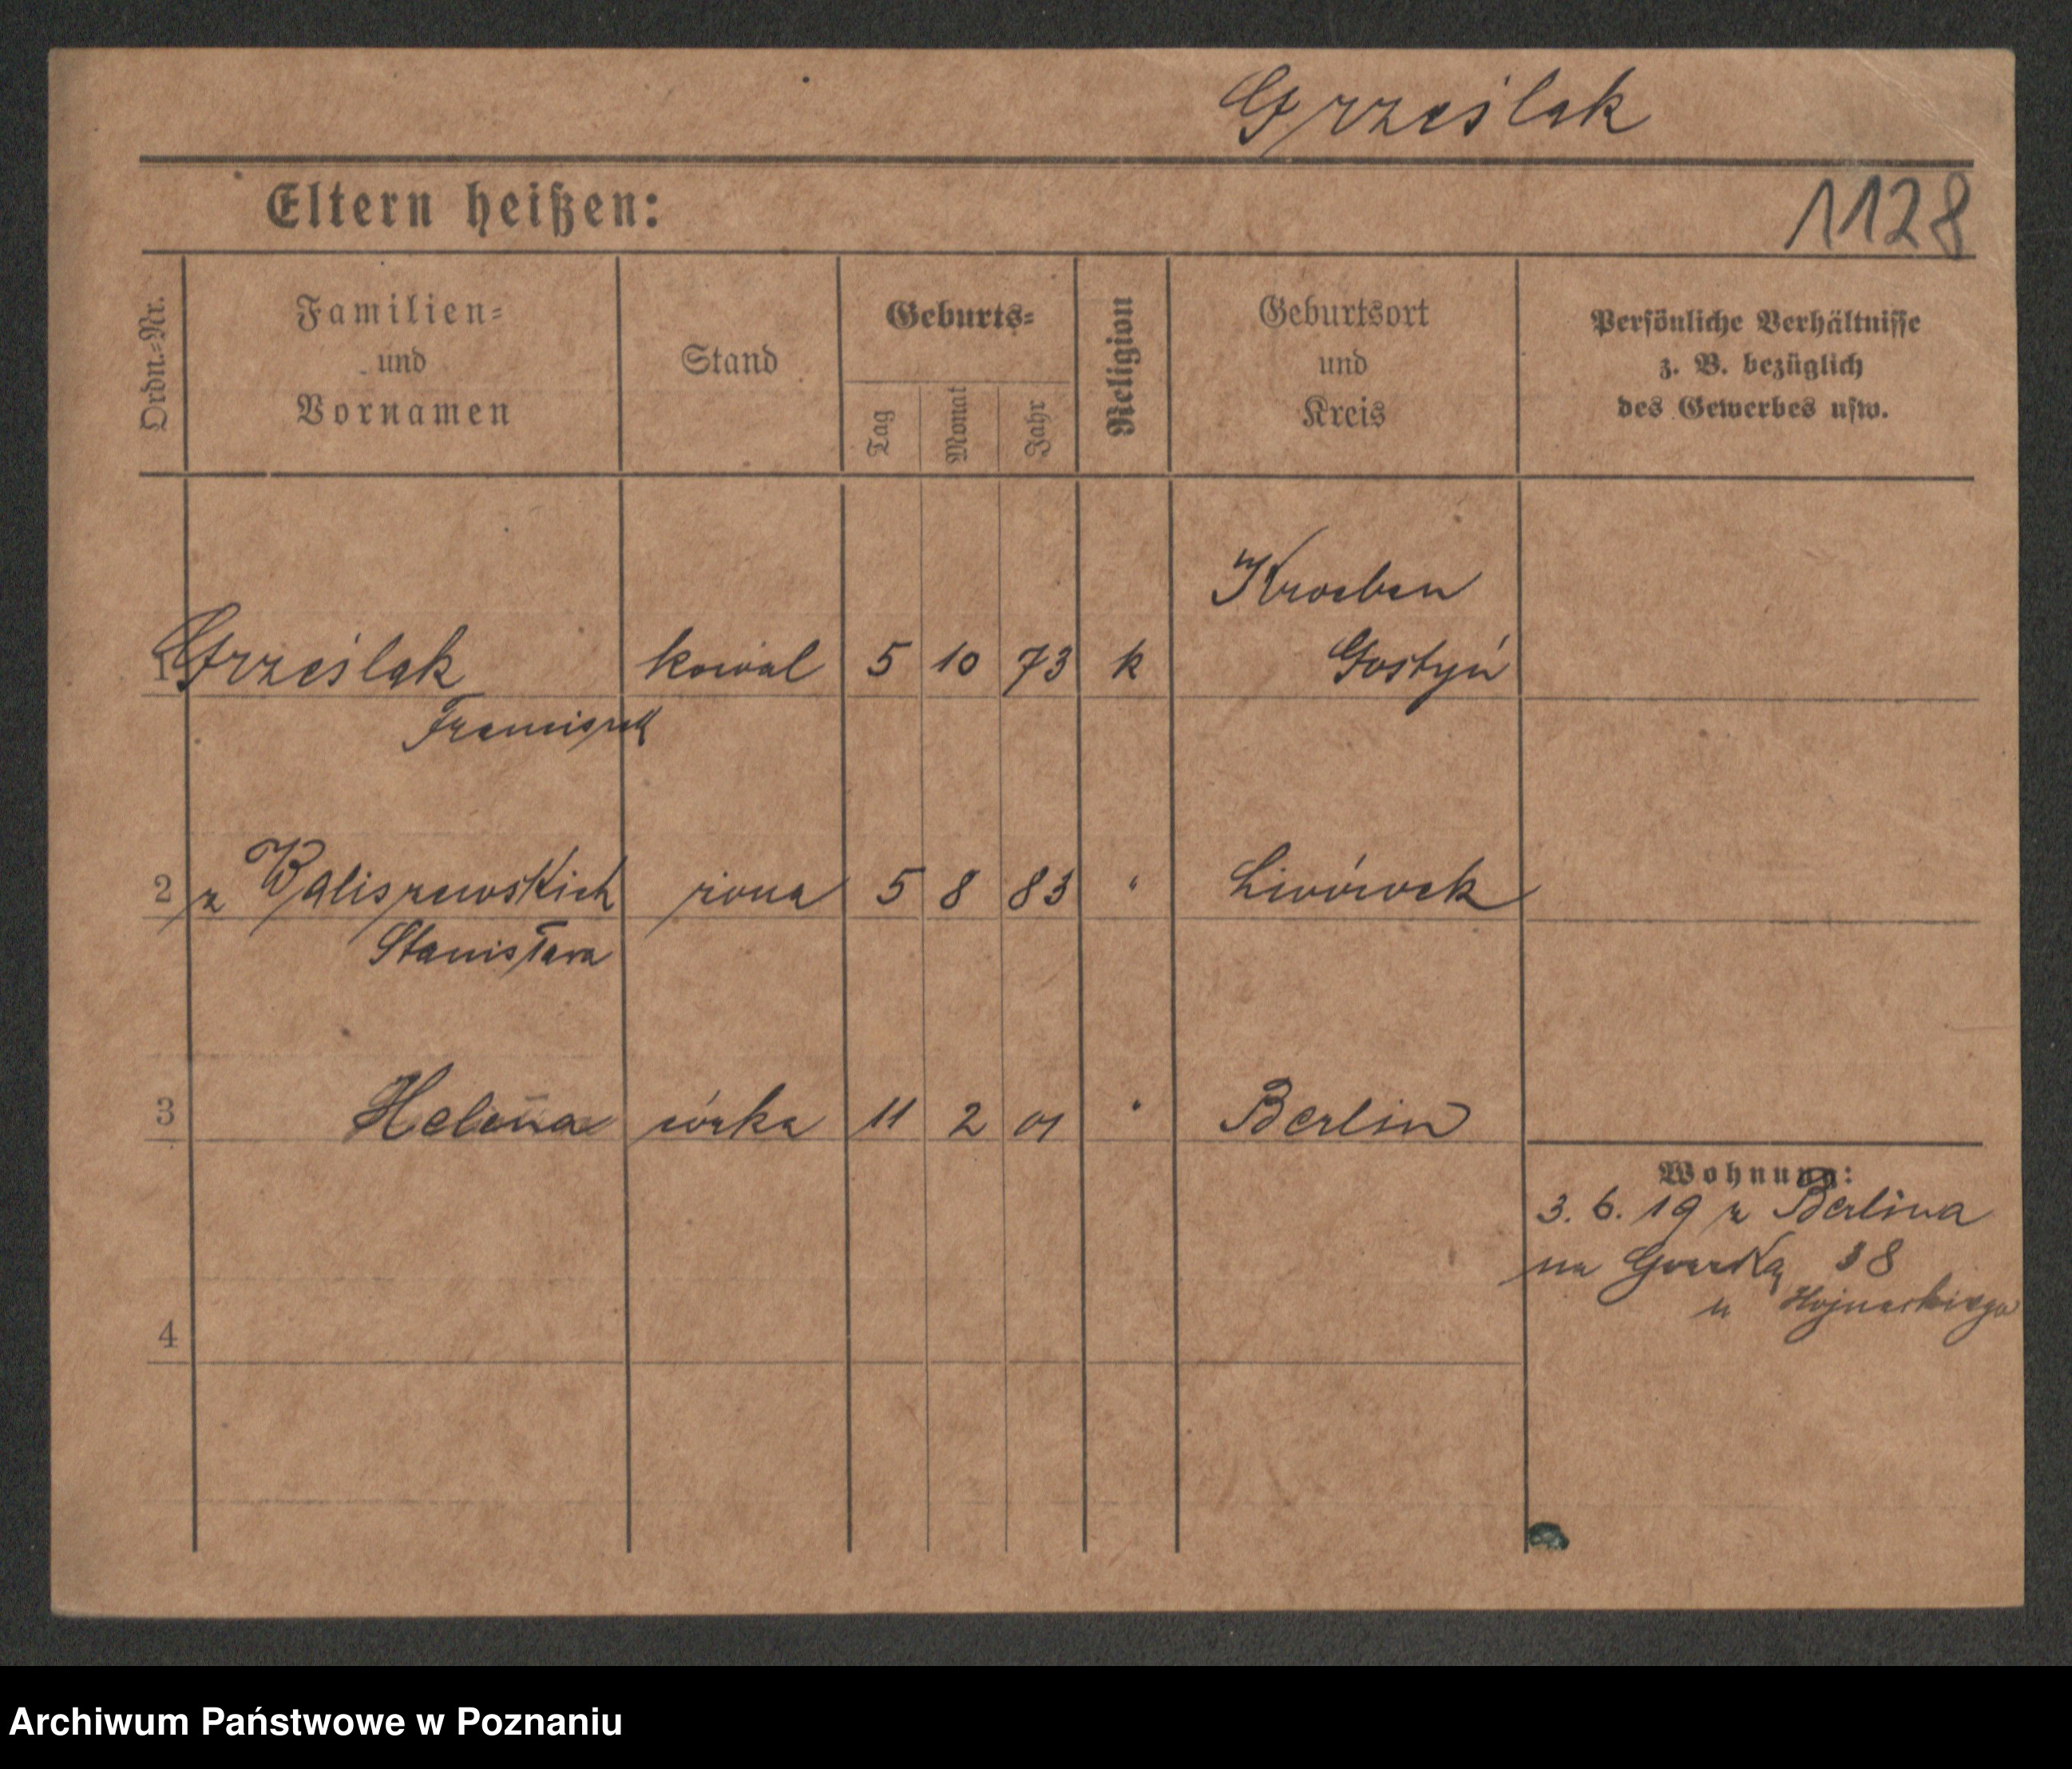 Grześlak
Eltern heißen:
1128
Ordn.-Nr.
Familien-
und
Vornamen
Stand
Geburts-
Tag
Monat
Jahr
Religion
Geburtsort
und
Kreis
Persönliche Verhältnisse
z. B. bezüglich
des Gewerbes usw.
Kroeben
1 Grześlak kowal 5 10 73 k Gostyń
Franciszek
2 z Waliszewskich żona 5 8 83 " Lwówek
Stanisława
3 Helena córka 11 2 01 " Berlin
Wohnung:
3. 6. 19 z Berlina
na Górską 38
u
4
Archiwum Państwowe w Poznaniu